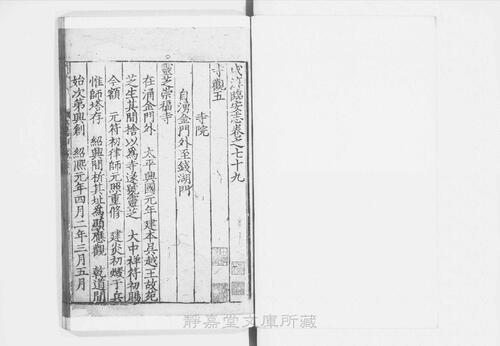 咸淳臨安志卷之七十九
寺觀五
寺院
自湧金門外至錢湖門
靈芝崇福寺
在涌金門外 太平興國元年建本吳越王故苑
芝生其間捨以為寺遂號靈芝 大中祥符初賜
今額 元符初律師元照重修 建炎初燬于兵
惟師塔存 紹興間析其址為顯應觀 乾道間
始次第興創 紹熙元年四月二年三月五月
靜嘉堂文庫所藏